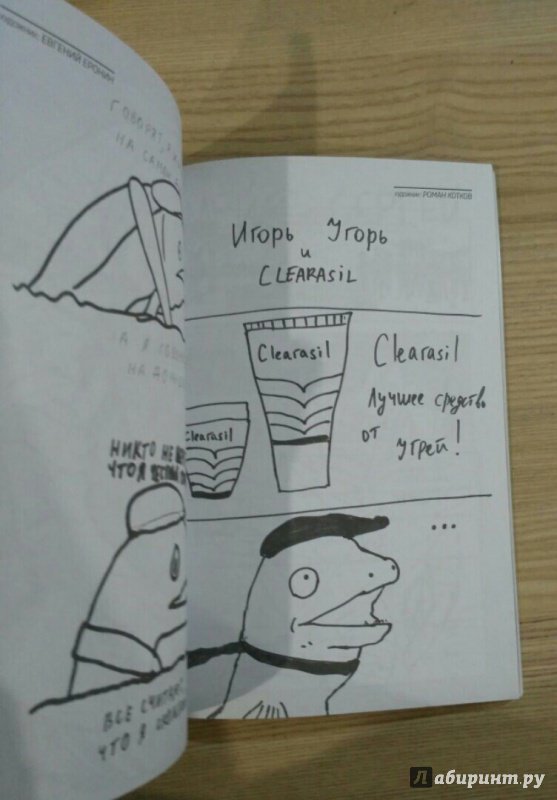 ЕВГЕНИЙ ЕРОНИН
ГОВОРЯТ,
НА
НА
НИКТО НЕ
ЧТО Я
ВСЕ СЧИТАЮТ
ЧТО Я
художник: РОМАН КОТКОВ
Игорь Угорь
и
CLEARASIL
Clearasil
Clearasil
Clearasil
Лучшее средство
от
угрей!
...
Лабиринт.ру